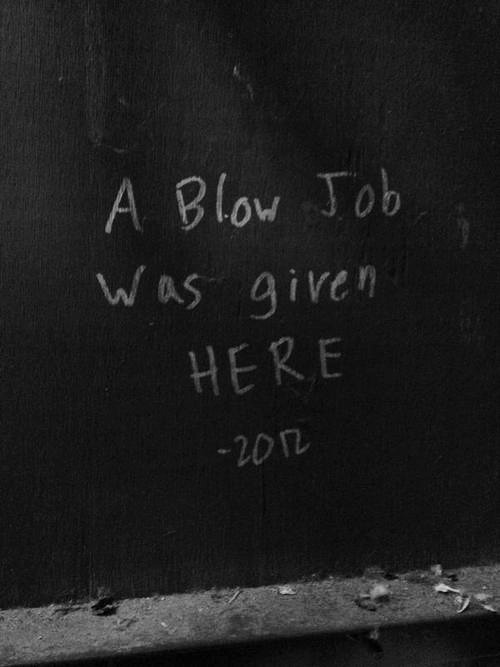 A Blow Job
Was given
HERE
-2012